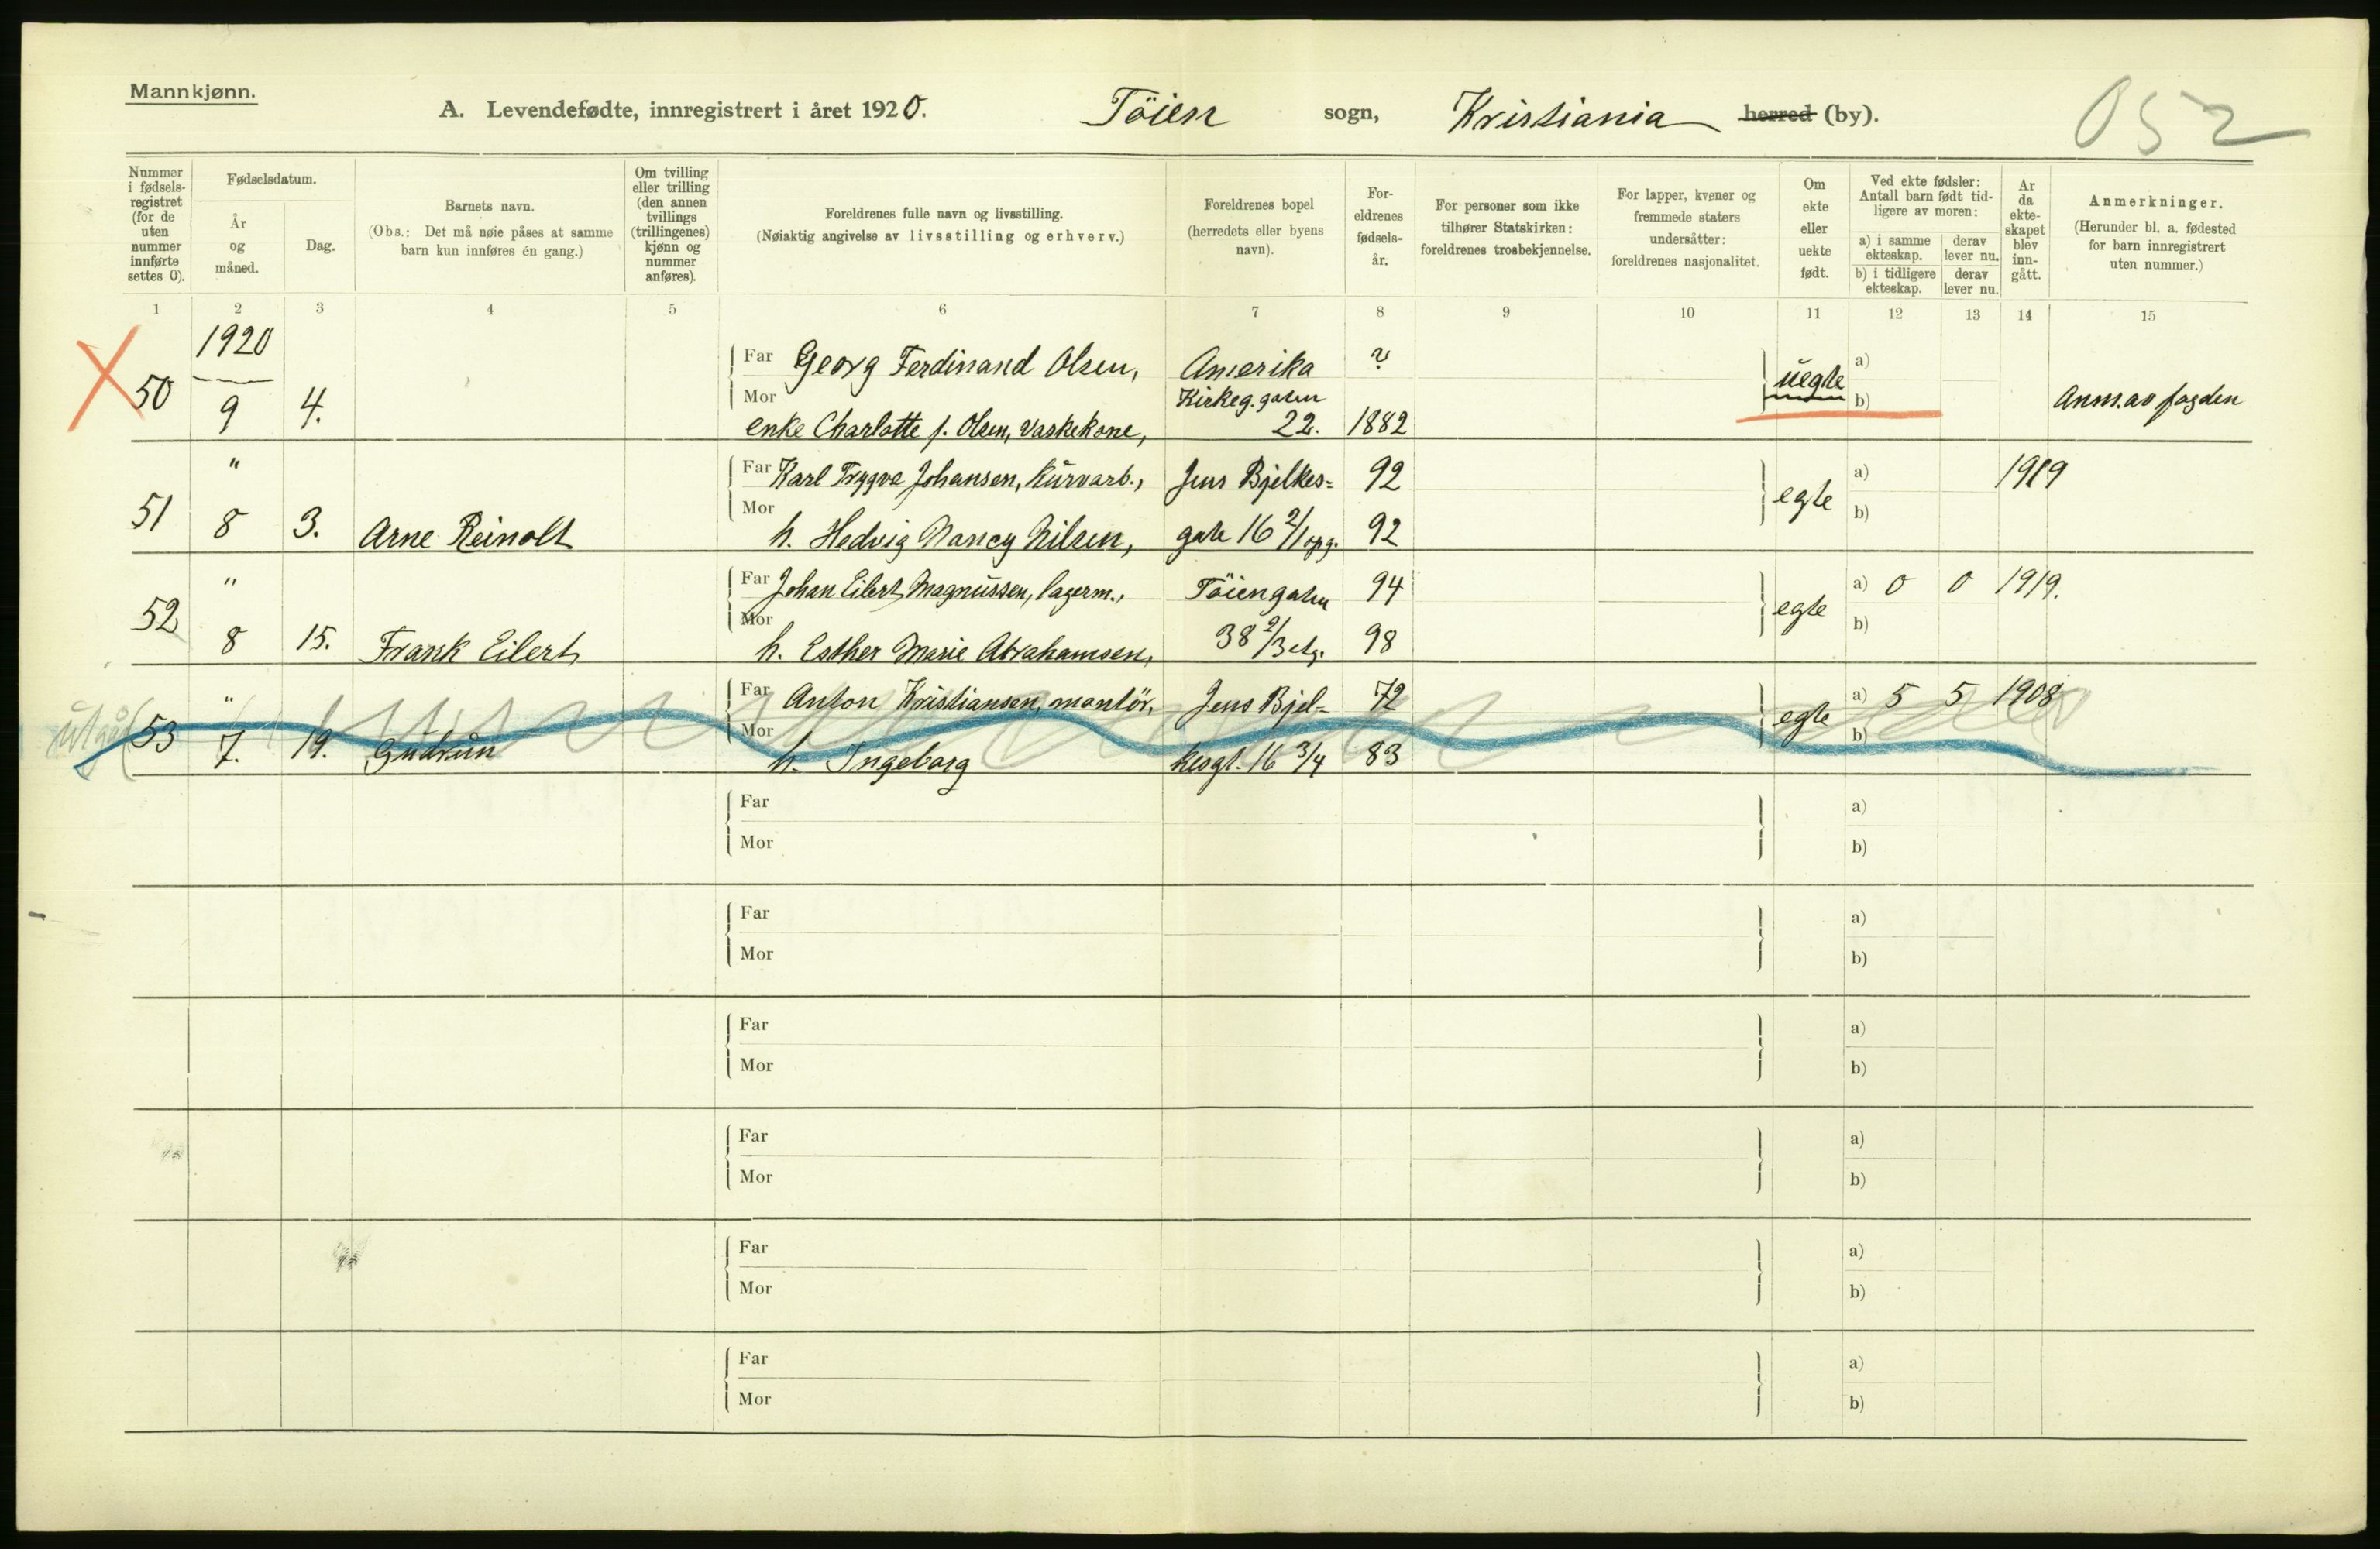 Mannkjønn.
A. Levendefødte, innregistrert i året 1920. Töien sogn, Kristiania herred (by).
052
Nummer i fødsels-registret (for de uten nummer innførte settes 0).
Fødselsdatum.
År og måned.
Dag.
Barnets navn.
(Obs.: Det må nøie påses at samme barn kun innføres én gang.)
Om tvilling eller trilling (den annen tvillings (trillingenes) kjønn og nummer anføres).
Foreldrenes fulle navn og livsstilling.
(Nøiaktig angivelse av livsstilling og erhverv.)
Foreldrenes bopel (herredets eller byens navn).
For-eldrenes fødsels-år.
For personer som ikke tilhører Statskirken: foreldrenes trosbekjennelse.
For lapper, kvener og fremmede staters undersåtter: foreldrenes nasjonalitet.
Om ekte eller uekte født.
Ved ekte fødsler: Antall barn født tid-ligere av moren:
a) i samme ekteskap. derav lever nu.
b) i tidligere ekteskap. derav lever nu.
År da ekte-skapet blev inn-gått.
Anmerkninger.
(Herunder bl. a. fødested for barn innregistrert uten nummer.)
1 2 3 4 5 6 7 8 9 10 11 12 13 14 15
1920
Far Georg Ferdinand Olsen, Amerika ? a)
50 9 4. Mor Kirkeg.gaten uegte b) Anm. av fogden
enke Charlotte f. Olsen, vaskekone, 22. 1882
" Far Karl Trygve Johansen, kurvarb., Jens Bjelkes= 92 a) 1919
51 8 3. Arne Reinolt Mor egte b)
h. Hedvig Nancy Nilsen, gate 16 2/1 opg. 92
" Far Johan Eilert Magnussen, lagerm., Töiengaten 94 a) 0 0 1919.
52 8 15. Frank Eilert Mor egte b)
h. Esther Marie Abrahamsen, 38 2/3 etg. 98
" Far Anton Kristiansen, montör, Jens Bjel= 72 a) 5 5 1908
utgår 53 7. 19. Gudrun Mor egte b)
h. Ingeborg kesgt. 16 3/4 83
Far a)
Mor b)
Far a)
Mor b)
Far a)
Mor b)
Far a)
Mor b)
Far a)
Mor b)
Far a)
Mor b)